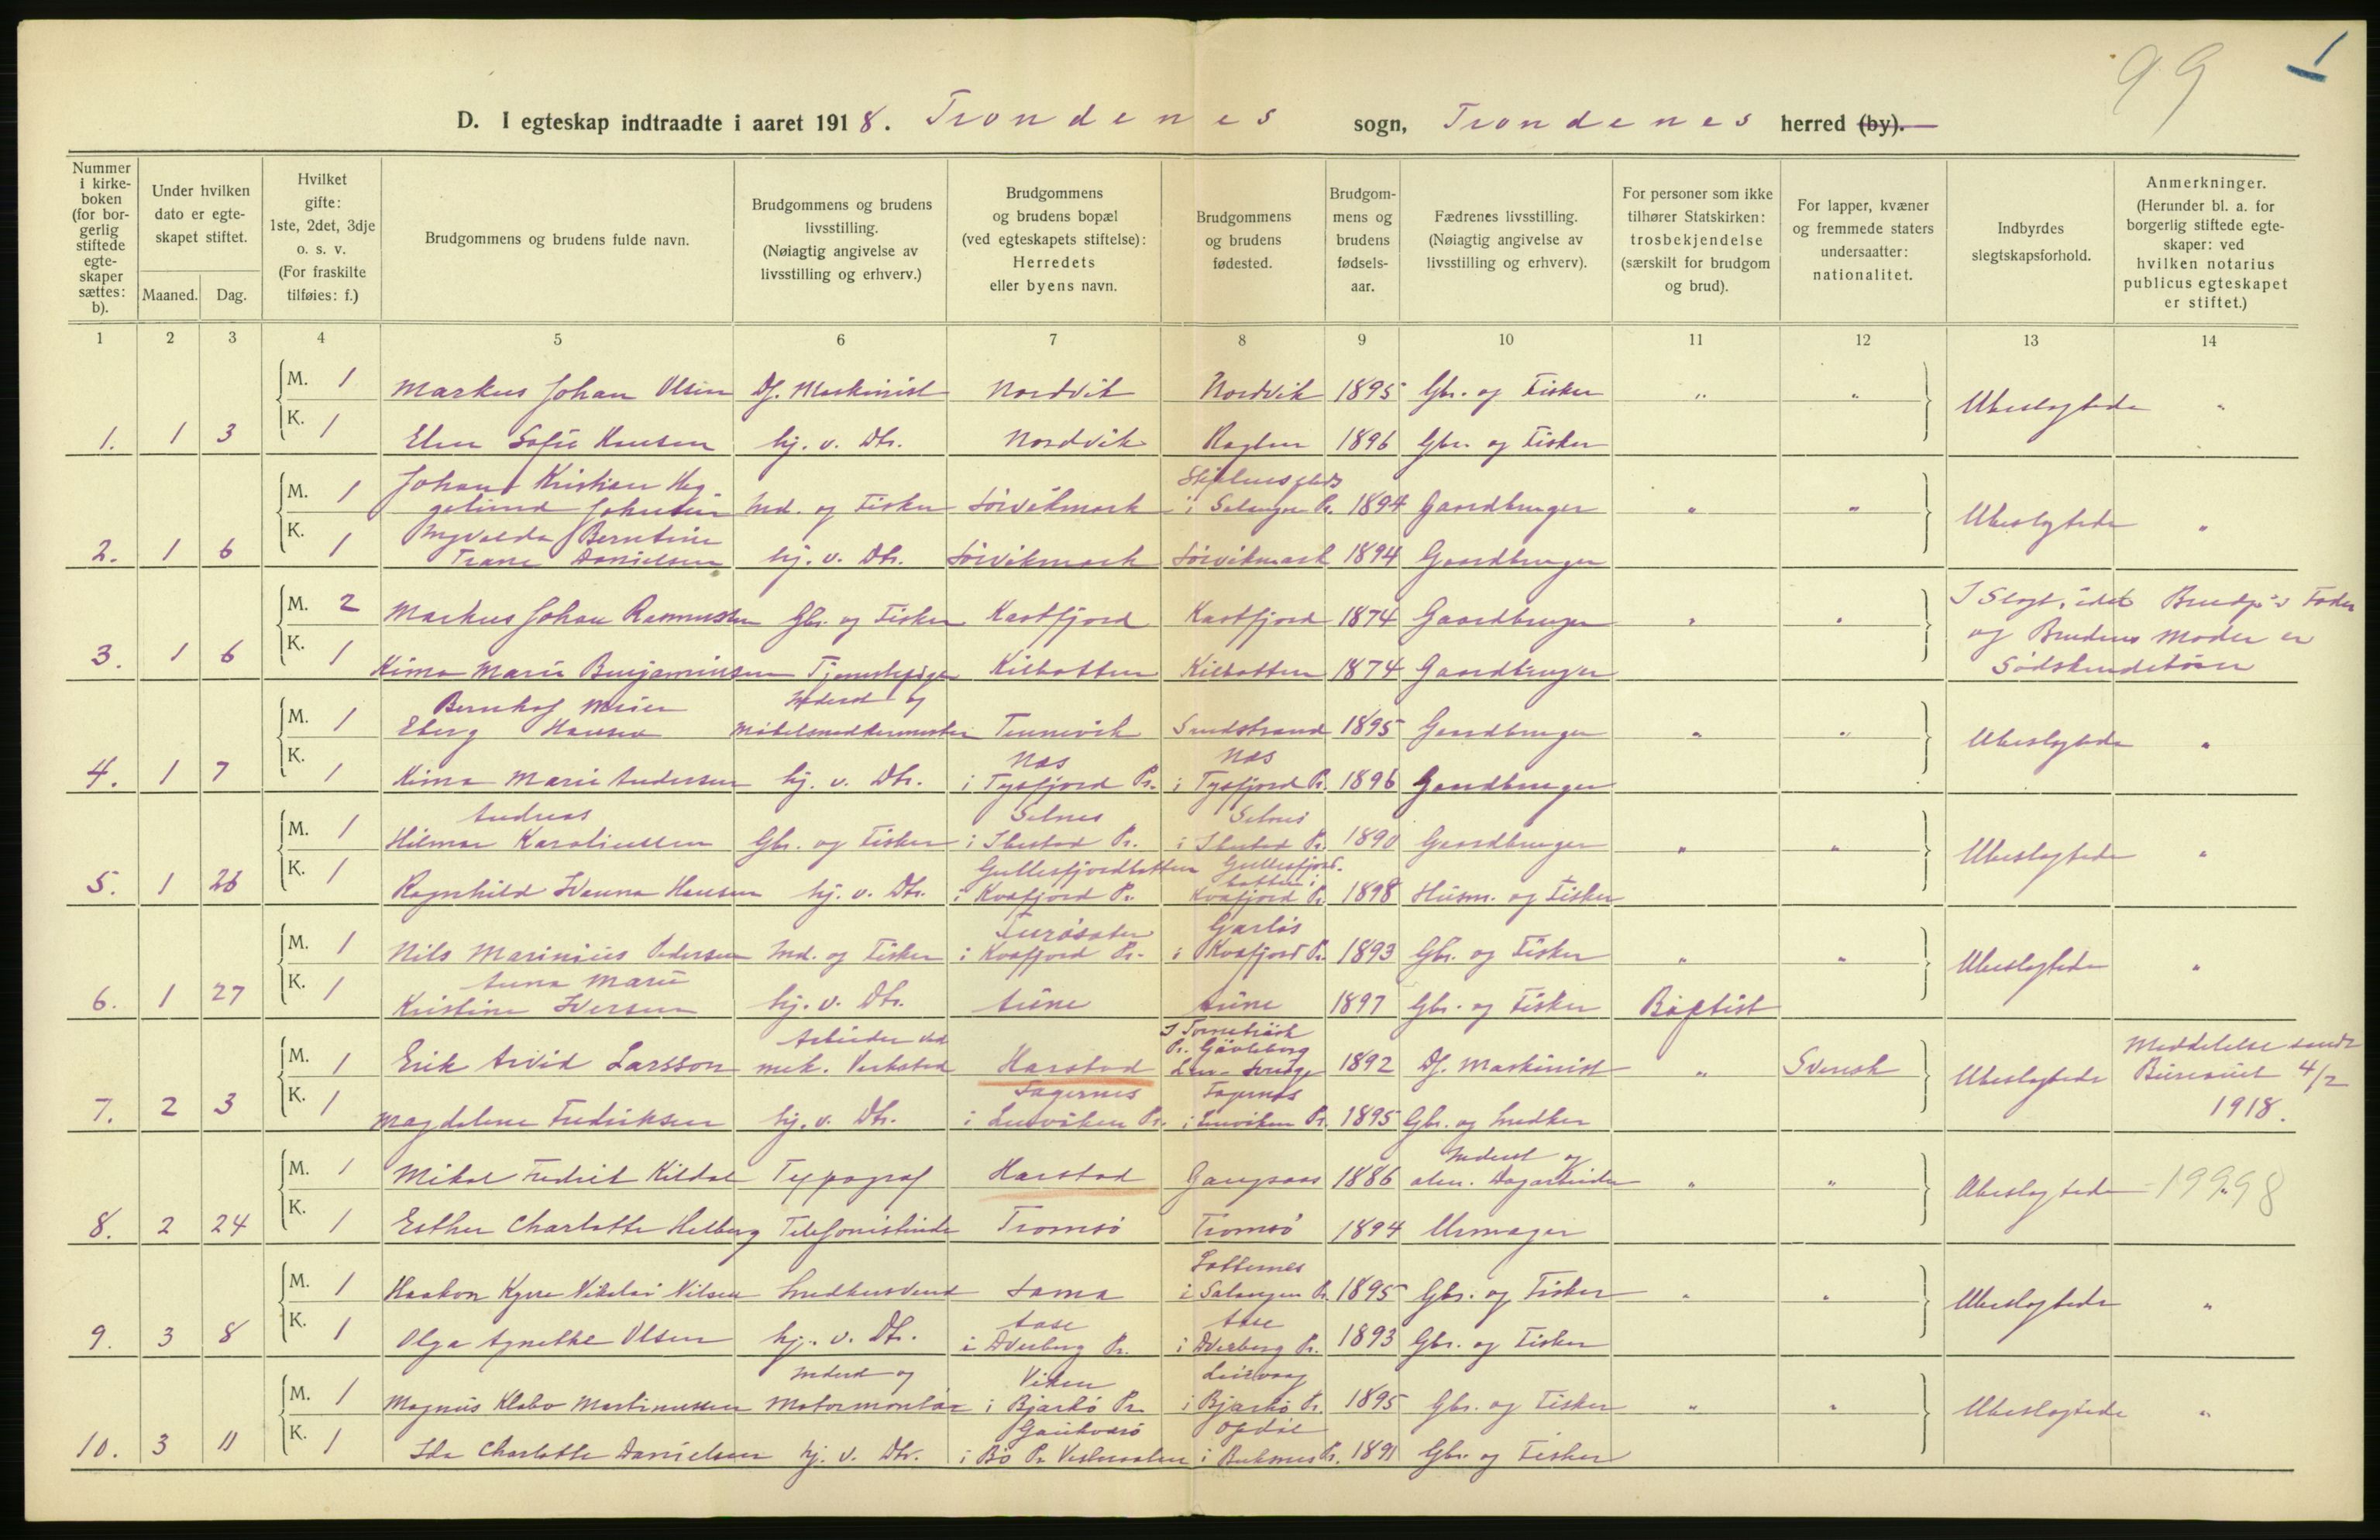 99 1
D. I egteskap indtraadte i aaret 1918. Trondenes sogn, Trondenes herred (by).
Nummer i kirkeboken (for borgerlig stiftede egteskaper sættes: b).
Under hvilken dato er egteskapet stiftet.
Maaned. Dag.
Hvilket gifte: 1ste, 2det, 3dje o. s. v. (For fraskilte tilføies: f.)
Brudgommens og brudens fulde navn.
Brudgommens og brudens livsstilling. (Nøiagtig angivelse av livsstilling og erhverv.)
Brudgommens og brudens bopæl (ved egteskapets stiftelse): Herredets eller byens navn.
Brudgommens og brudens fødested.
Brudgommens og brudens fødselsaar.
Fædrenes livsstilling. (Nøiagtig angivelse av livsstilling og erhverv).
For personer som ikke tilhører Statskirken: trosbekjendelse (særskilt for brudgom og brud).
For lapper, kvæner og fremmede staters undersaatter: nationalitet.
Indbyrdes slegtskapsforhold.
Anmerkninger. (Herunder bl. a. for borgerlig stiftede egteskaper: ved hvilken notarius publicus egteskapet er stiftet.)
1 2 3 4 5 6 7 8 9 10 11 12 13 14
M. 1 Markus Johan Olsen Df. Maskinist Nordvik Nordvik 1895 Gbr. og Fisker " " Ubeslegtede "
1. 1 3 K. 1 Elen Sofie Hansen hj. v. Dtr. Nordvik 1896 Gbr. og Fisker
M. 1 Johan Kristian Heggelund Johnsen Ind. og Fisker Sørvikmark i Salangen Pr. 1894 Gaardbruger " " Ubeslegtede "
2. 1 6 K. 1 Ingvalda Berntine Trane Danielsen hj. v. Dtr. Sørvikmark Sørvikmark 1894 Gaardbruger
M. 2 Markus Johan Rasmussen Gbr. og Fisker Kastfjord Kastfjord 1874 Gaardbruger " " I Slegt, idet Brudg's Fader og Brudens Moder er Sødskendebørn
3. 1 6 K. 1 Kima Marie Benjaminsen Tjenestepige Kilbotten Kilbotten 1874 Gaardbruger
M. 1 Bernhof Meier Eberg Hansen Inderst og Møbelsnedkermester Tennevik Sandstrand 1895 Gaardbruger " " Ubeslegtede "
4. 1 7 K. 1 Kima Marie Andersen hj. v. Dtr. Nes i Tysfjord Pr. Nes i Tysfjord Pr. 1896 Gaardbruger
M. 1 Andreas Hilmar Karoliussen Gbr. og Fisker Selnes i Ibestad Pr. Selnes i Ibestad Pr. 1890 Gaardbruger " " Ubeslegtede "
5. 1 26 K. 1 Ragnhild Ivanna Hansen hj. v. Dtr. Gullesfjordbotten i Kvæfjord Pr. Gullesfjordbotten i Kvæfjord Pr. 1898 Husm. og Fisker
M. 1 Nils Marinius Pedersen Ind. og Fisker i Kvæfjord Pr. i Kvæfjord Pr. 1893 Gbr. og Fisker " " Ubeslegtede "
6. 1 27 K. 1 Anna Marie Kristine Iversen hj. v. Dtr. Aune Aune 1897 Gbr. og Fisker Baptist
M. 1 Erik Arvid Larsson Arbeider ved mek. Verksted Harstad Pr. Gävleborg Len Sverige 1892 Df. Maskinist " Svensk Ubeslegtede Meddelelse sendt Bureauet 4/2 1918.
7. 2 3 K. 1 Magdalene Fredriksen hj. v. Dtr. Fagernes i Lenviken Pr. Fagernes i Lenviken Pr. 1895 Gbr. og Snedker
M. 1 Mikal Fredrik Kildal Typograf Harstad Gangsaas 1886 Inderst og alm. Dagarbeider " " Ubeslegtede
8. 2 24 K. 1 Esther Charlotte Helberg Telefonistinde Tromsø Tromsø 1894 Urmager
M. 1 Haakon Kyrre Nikolai Nilsen Snedkersvend Sama i Salangen Pr. 1895 Gbr. og Fisker " " Ubeslegtede "
9. 3 8 K. 1 Olga Agnethe Olsen hj. v. Dtr. Aase i Dverberg Pr. Aase i Dverberg Pr. 1893 Gbr. og Fisker
M. 1 Magnus Klabo Martinussen Inderst og Motormontør Viken i Bjarkø Pr. Leirvaag i Bjarkø Pr. 1895 Gbr. og Fisker " " Ubeslegtede "
10. 3 11 K. 1 Ida Charlotte Danielsen hj. v. Dtr. Gaukværø i Bø Pr. Vesteraalen Opdøl i Buksnes Pr. 1891 Gbr. og Fisker